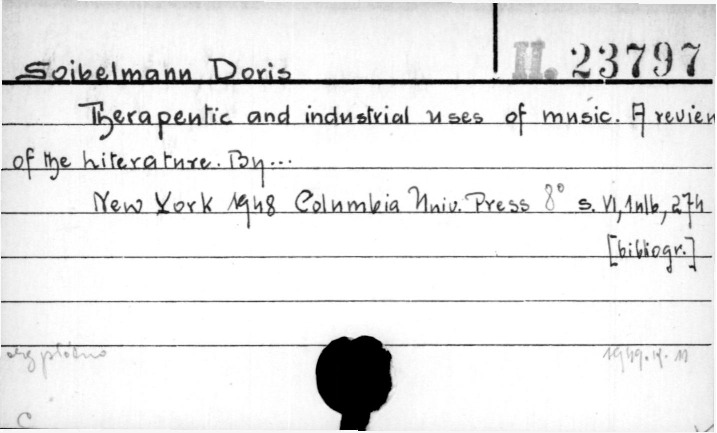 H. 23797
Soibelmann Doris
Therapeutic and industrial uses of music. A review
of the Literature. By...
New York 1948 Columbia Univ. Press 8° s. VI, 1nlb, 274
[bibliogr.]
egz płócno
1949. 11
C